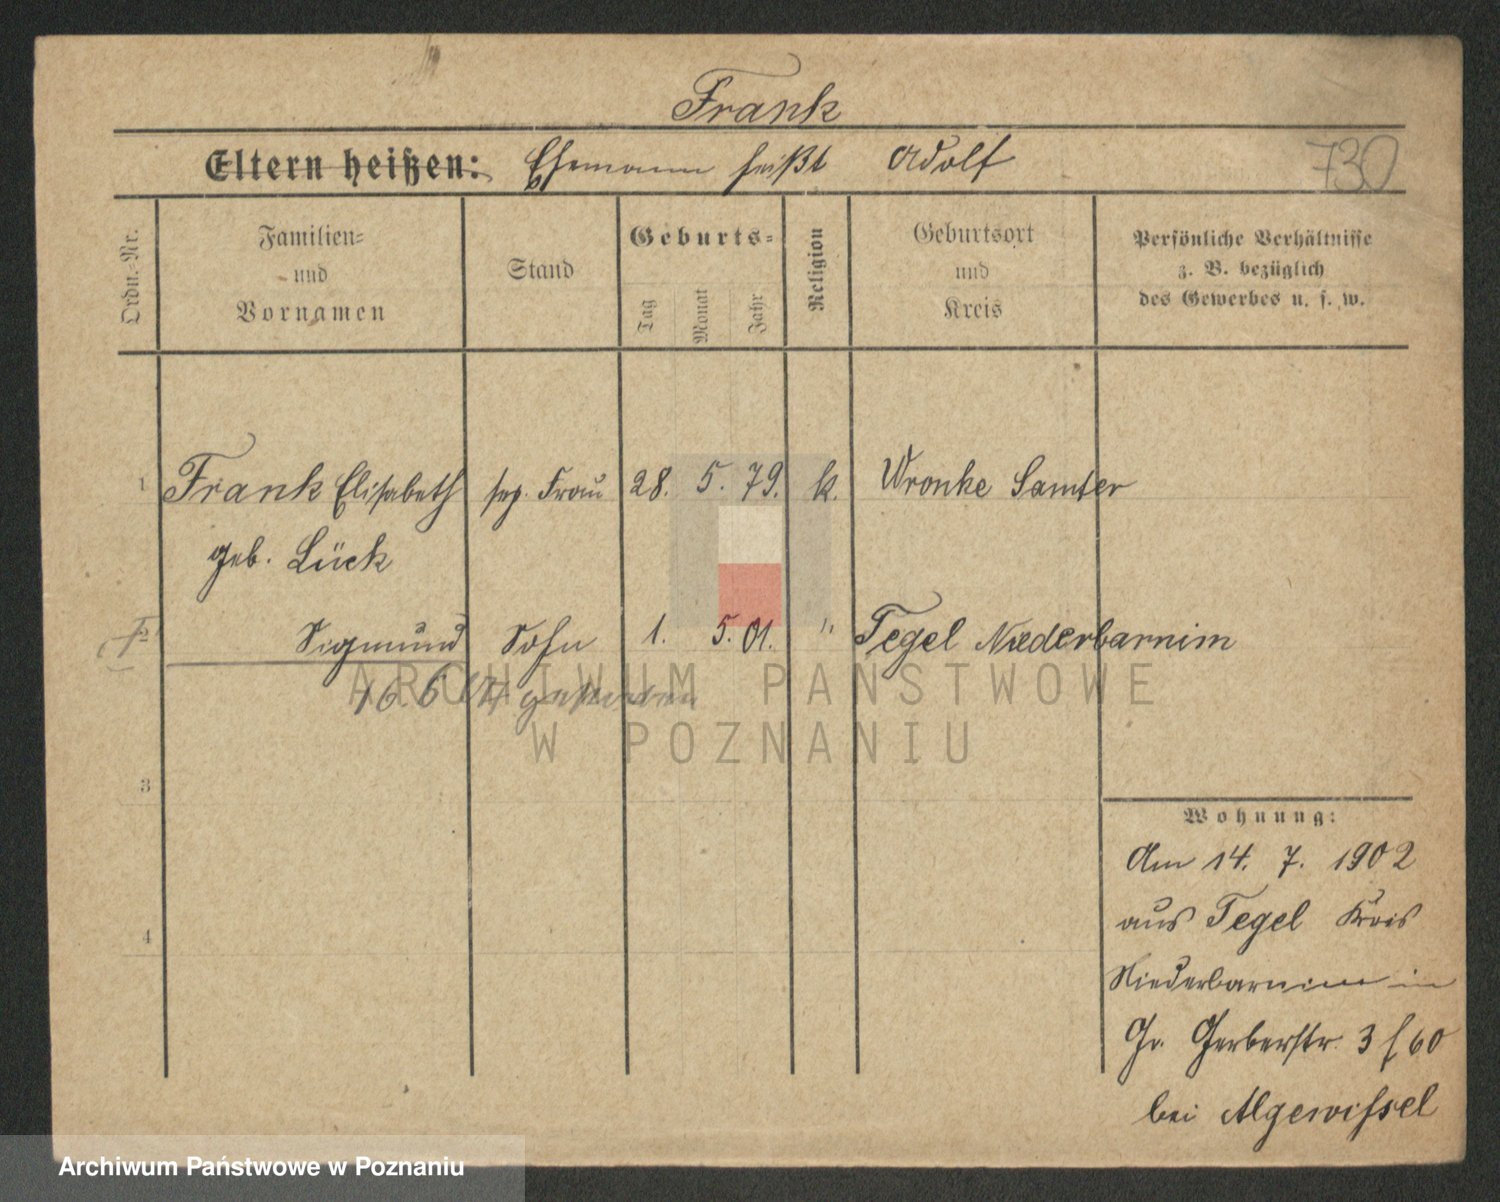 Frank
Eltern heißen: Ehemann heißt Adolf
730
Ordn.-Nr.
Familien-
und
Vornamen
Stand
Geburts-
Tag
Monat
Jahr
Religion
Geburtsort
und
Kreis
Persönliche Verhältnisse
z. B. bezüglich
des Gewerbes u. s. w.
1 Frank Elisabeth sep. Frau 28. 5. 79. k. Wronke Samter
geb. Lück
2 Sigmund Sohn 1. 5. 01. " Tegel Niederbarnim
16 6 gestorben
ARCHIWUM PAŃSTWOWE
W POZNANIU
3
4
Wohnung:
Am 14. 7. 1902
aus Tegel Kreis
Niederbarnim in
Gr. Gerberstr. 3 f 60
bei Algewissel
Archiwum Państwowe w Poznaniu